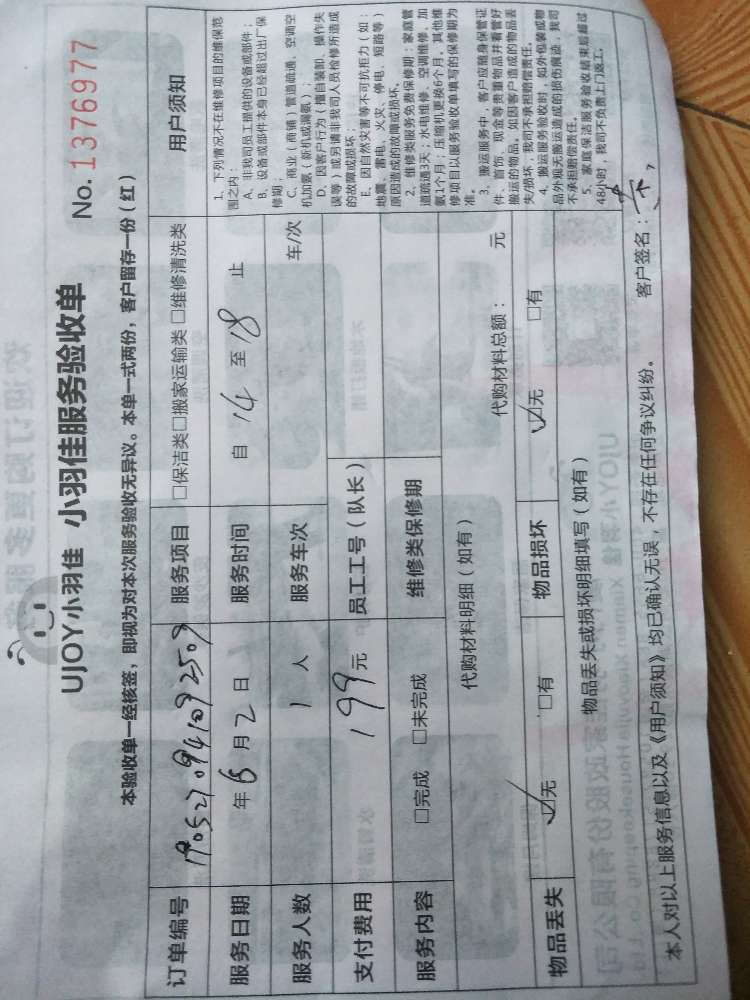 UJOY小羽佳 小羽佳服务验收单
No. 1376977
本验收单一经核签，即视为对本次服务验收无异议。本单一式两份，客户留存一份（红）
订单编号 服务项目 □保洁类□搬家运输类 □维修清洗类
服务日期 年 6 月 2 日 服务时间 自 14 至 18 止
服务人数 1 人 服务车次 车/次
支付费用 199 元 员工工号（队长）
服务内容 □完成 □未完成 维修类保修期
代购材料明细（如有） 代购材料总额： 元
物品丢失 ☑无 □有 物品损坏 ☑无 □有
物品丢失或损坏明细填写（如有）
用户须知
1、下列情况不在维修项目的维保范
围之内：
A、非我司员工提供的设备或部件；
B、设备或部件本身已经超过出厂保
修期；
C、商业（商铺）管道疏通、空调空
机加氨（新机或漏氨）；
D、因客户行为（擅自装卸、操作失
误等）或另请非我司人员检修所造成
的故障或损坏；
E、因自然灾害等不可抗拒力（如：
地震、雷电、火灾、停电、短路等）
原因造成的故障或损坏。
2、维修类服务免费保修期：家庭管
道疏通3天；水电维修、空调维修、加
氨1个月；压缩机更换6个月，其他维
修项目以服务验收单填写的保修期为
准。
3、搬运服务中，客户应随身保管证
件、首饰、现金等贵重物品并看管好
搬运的物品，如因客户造成的物品丢
失/损坏，我司不承担赔偿责任。
4、搬运服务验收时，如外包装或物
品外观无搬运造成的损伤痕迹，我司
不承担赔偿责任。
5、家庭保洁服务验收结束后超过
48小时，我司不负责上门返工。
本人对以上服务信息以及《用户须知》均已确认无误，不存在任何争议纠纷。 客户签名：